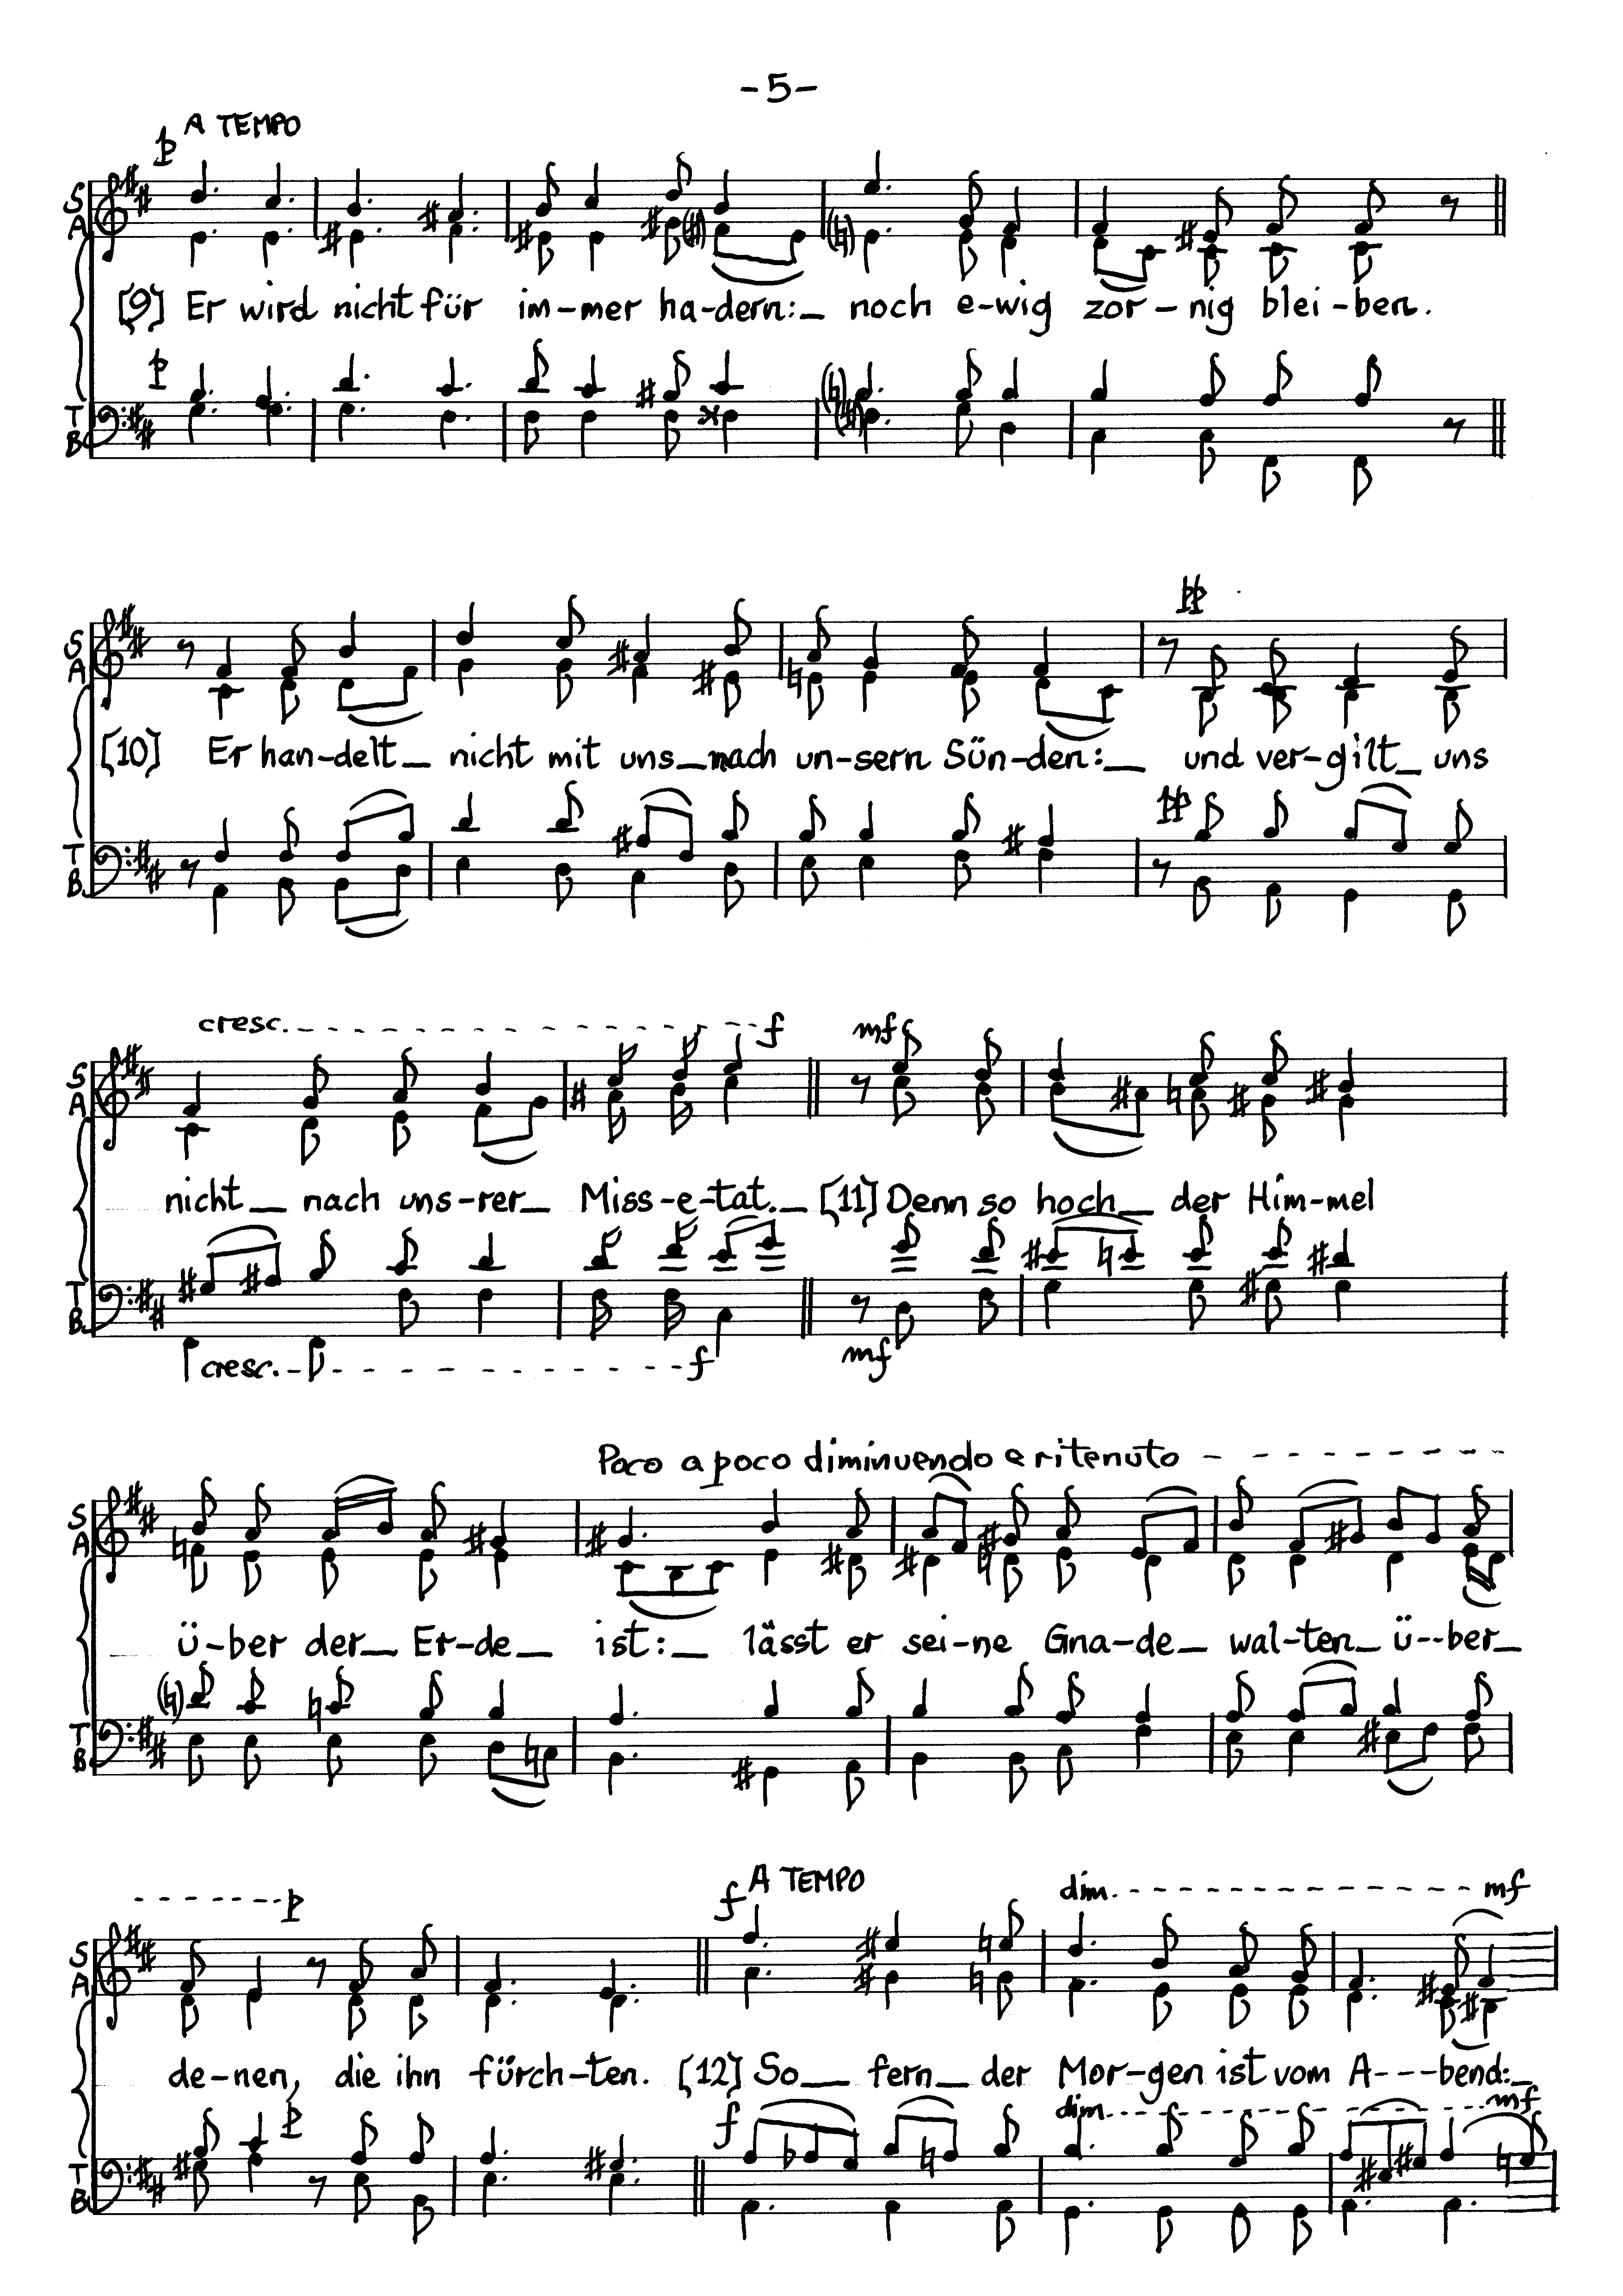 -5-
A TEMPO
p
S
A
[9] Er wird nicht für im-mer ha-dern:_ noch e-wig zor-nig blei-ben.
p
T
B
pp
S
A
[10] Er han-delt_ nicht mit uns_nach un-sern Sün-den:_ und ver-gilt_ uns
pp
T
B
cresc. - - - - - - - - - - - - f mf
S
A
nicht_ nach uns-rer_ Miss-e-tat._ [11] Denn so hoch_ der Him-mel
T
B
cresc. - - - - - - - - - f mf
Poco a poco diminuendo e ritenuto - - - - - - -
S
A
ü-ber der_ Er-de_ ist:_ lässt er sei-ne Gna-de_ wal-ten_ ü--ber_
T
B
- - - - - - - p f A TEMPO dim. - - - - - - - - - - - mf
S
A
de-nen, die ihn fürch-ten. [12] So_ fern_ der Mor-gen ist vom A---bend:_
p f dim. - - - - - - - - - - - mf
T
B